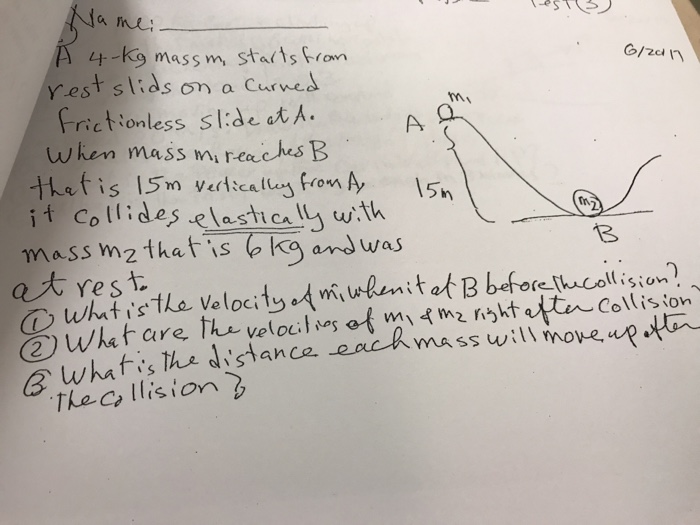 Test (3)
Name:
6/2017
A 4-kg mass m, starts from
rest slids on a curved
frictionless slide at A.
When mass m, reaches B
that is 15m vertically from A,
it collides elastically with
mass m2 that is 6kg and was
at rest.
m1
A
15m
m2
B
① What is the velocity of m, when it at B before the collision?
② What are the velocities of m1 & m2 right after collision
③ What is the distance each mass will move up after
the collision?